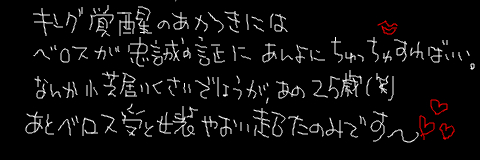 キング覚醒のあかつきには
ベロスが忠誠の証にあんよにちゅっちゅすればいい。
なんか小芝居くさいでしょうが、あの25歳(笑)
あとベロス受と女装やおい超たのみです〜